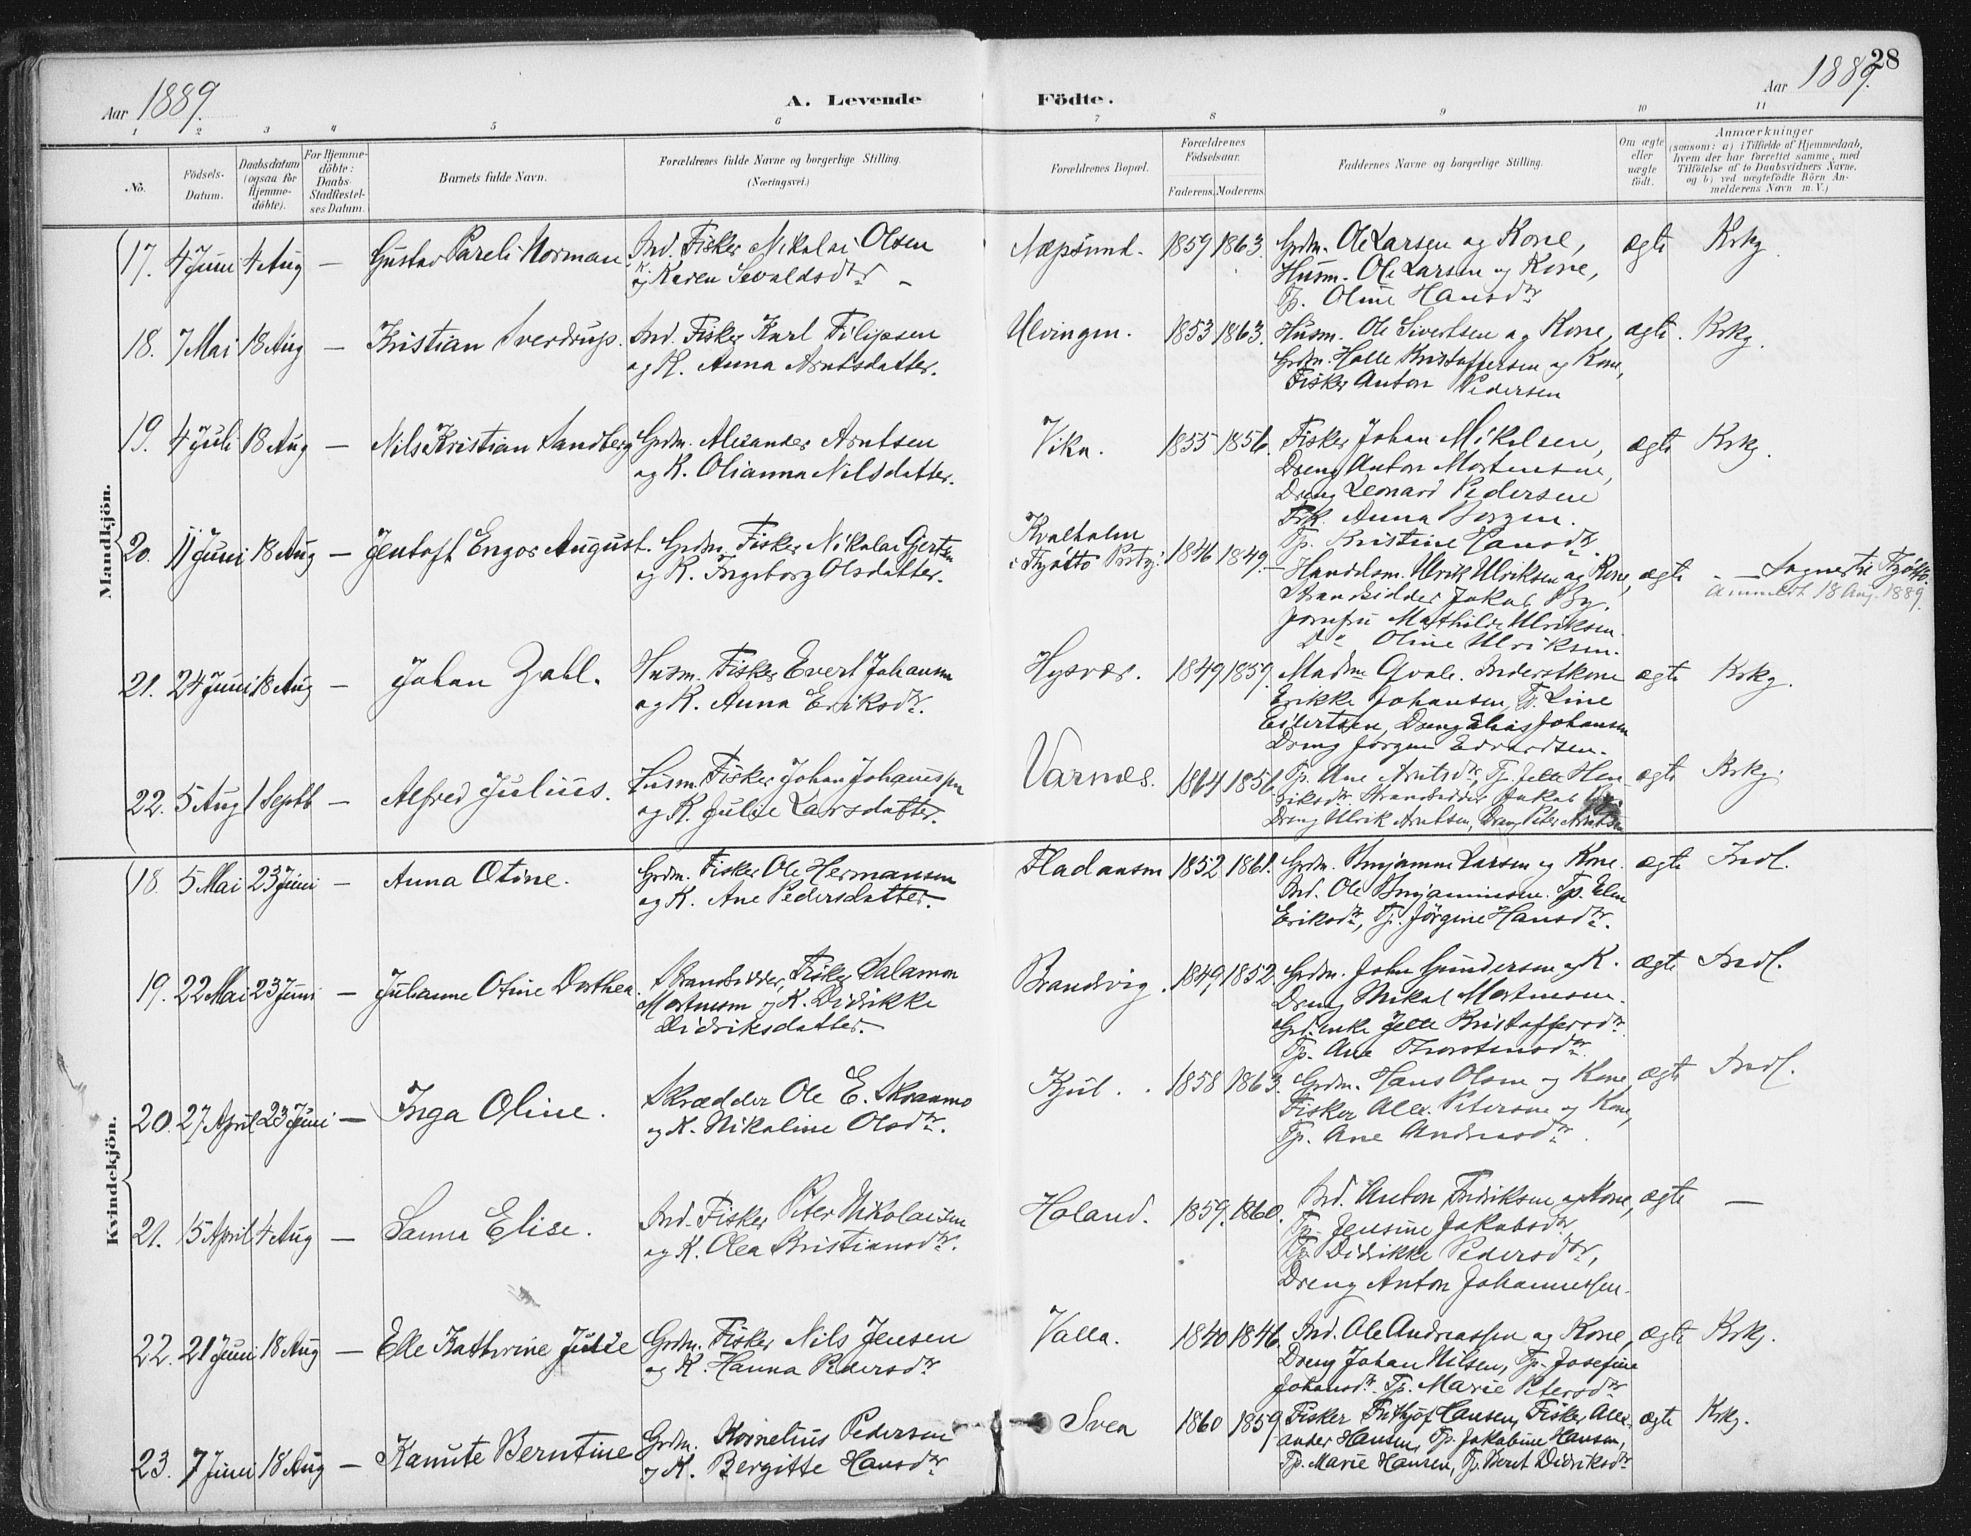 28
Aar 1889.
A. Levende Födte.
Aar 1889.
1 2 3 4 5 6 7 8 9 10 11
No.
Födsels-Datum.
Daabsdatum (ogsaa for Hjemme-döbte).
For Hjemme-döbte: Daabs-Stadfæstel-ses Datum.
Barnets fulde Navn.
Forældrenes fulde Navne og borgerlige Stilling.
(Næringsvei.)
Forældrenes Bopæl.
Forældrenes Födselsaar.
Faderens. Moderens.
Faddernes Navne og borgerlige Stilling.
Om ægte eller uægte födt.
Anmærkninger
(saasom: a) i Tilfælde af Hjemmedaab,
hvem der har forrettet samme, med
Tilföielse af to Daabsvidners Navne,
og b) ved uægtefödte Börn An-
melderens Navn m. V.)
Mandkjön.
17. 4 Juni 4 Aug — Gustav Pareli Norman Ind. Fisker Nikolai Olsen Næpsund. 1859 1863. Grdm. Ole Larsen og Kone, ægte Krkg.
og K. Karen Sevaldsdtr Husm. Ole Larsen og Kone,
Tp. Oline Hansdtr
18. 7 Mai 18 Aug — Kristian Sverdrup. Ind. Fisker Karl Filipsen Ulvingen. 1853 1863. Husm. Ole Sivertsen og Kone, ægte. Krkg.
og K. Anna Arntsdatter. Grdm. Halle Kristoffersen og Kone,
Fisker Anton Pedersen
19. 4 Juli 18 Aug — Nils Kristian Sandberg Grdm. Alexander Arntsen Vika. 1855 1856. Fisker Johan Mikalsen, ægte Krkg.
og K. Olianna Nilsdatter. Dreng Anton Mortensen,
Dreng Leonard Pedersen
Frk. Anna Borgen.
20. 11 Juni 18 Aug — Jentoft Enger August. Grdm. Fisker Nikolai Gertsen Kvalholm 1846 1849. Tp. Kristine Hansdtr.
og K. Ingeborg Olsdatter. i Tjötto Prstgj. Handelsm. Ulrik Ulriksen og Kone, ægte — Sogner til Tjötto.
Strandsidder Jakob By. Anmeldt 18 Aug. 1889.
Jomfru Mathilde Ulriksen.
Do Oline Ulriksen.
21. 24 Juni 18 Aug — Johan Zahl. Husm. Fisker Evert Johansen Hysvær. 1849 1859. Madm. Qvale. Inderstkone ægte Krkg.
og K. Anna Eriksdtr. Erikke Johansen, Tp. Line
Eilertsen, Dreng Elias Johansen
Dreng Jörgen Edvardsen.
22. 5 Aug 1 Septb — Alfred Julius. Husm. Fisker Johan Johanssen Varnæs. 1864 1856 Tp. Ane Arntsdtr, Tp. Jelle Hen ægte Krkg.
og K. Julie Larsdatter. riksdtr. Strandsidder Jakob
Dreng Ulrik Arntsen, Dreng Peter Arntsen
Kvindekjön.
18. 5 Mai 23 Juni — Anna Otine. Grdm. Fisker Ole Hermansen Fladausen 1852 1861. Grdm. Benjamin Larsen og Kone. ægte Indl.
og K. Ane Pedersdatter. Ind. Ole Benjaminsen. Tp. Elen
Eriksdtr, Tp. Jörgine Hansdtr.
19. 22 Mai 23 Juni — Julianne Otine Dorthea. Strandsidder, Fisker Salamon Brandsvig. 1849 1852 Grdm. John Gundersen og K. ægte Indl.
Mortensen og K. Didrikke Dreng Mikal Mortensen.
Didriksdatter. Grd.enke Jelle Kristoffersdtr.
Tp. Ane Thorstensdtr.
20. 27 April 23 Juni — Inga Oline. Skrædder Ole E. Skraamo Kjul. 1858 1863. Grdm. Hans Olsen og Kone, ægte Indl.
og K. Nikoline Olsdtr. Fisker Alex. Petersen og Kone,
Tp. Ane Andreasdtr.
21. 5 April 4 Aug — Sanna Elise. Ind. Fisker Peter Nikolaisen Holand. 1859. 1860. Ind. Anton Fredriksen og Kone, ægte —
og K. Olea Kristiansdtr. Tp. Jensine Jakobsdtr.
Tp. Didrikke Pedersdtr,
Dreng Anton Johannessen.
22. 21 Juni 18 Aug — Elle Katherine Julie Grdm. Fisker Nils Jensen Valla. 1840 1846. Ind. Ole Andreassen og Kone, ægte Krkg.
og K. Hanna Pedersdtr Dreng Johan Nilsen, Tp. Josefine
Johansdtr. Tp. Marie Petersdtr
23. 7 Juni 18 Aug — Kanute Berntine Grdm. Kornelius Pedersen Svea 1860 1859 Fisker Frithjof Hansen, Fisker Alex- ægte Krkg.
og K. Bergitte Hansdtr ander Hansen, Tp. Jakobine Hansen,
Tp. Marie Hansen, Tp. Beret Didriksdtr